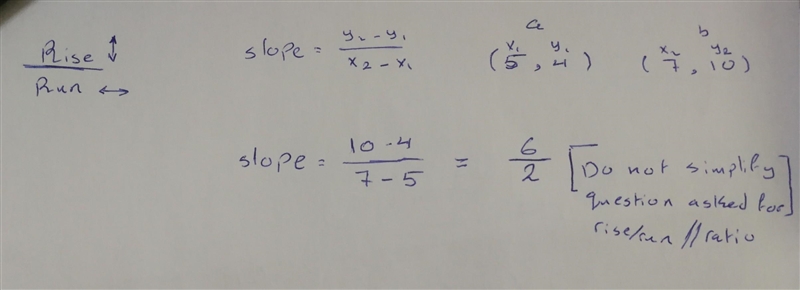 Rise ↕
Run ↔
slope = y₂ - y₁ / x₂ - x₁
a
x₁ y₁
(5, 4)
b
x₂ y₂
(7, 10)
slope = 10 - 4 / 7 - 5 = 6 / 2
[Do not simplify
question asked for]
rise/run // ratio